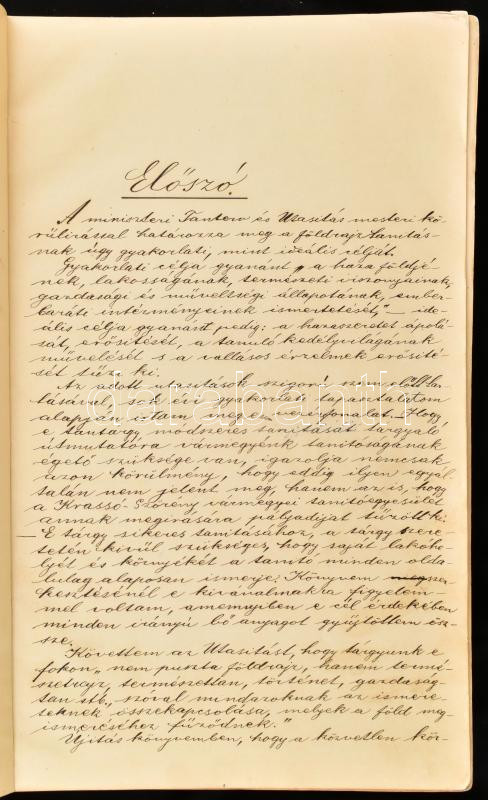 Előszó.
A miniszteri Tanterv és Utasítás mesteri kö-
rülirással határozza meg a földrajz tanitás-
nak úgy gyakorlati, mint ideális célját.
Gyakorlati célja gyanánt „a haza földjé-
nek, lakosságának, természeti viszonyainak,
gazdasági és műveltségi állapotának, ember-
baráti intézményeinek ismertetését,"— ide-
ális célja gyanánt pedig: a hazaszeretet ápolá-
sát, erősitését, a tanuló kedélyvilágának
művelését s a vallásos érzelmek erősité-
sét tűzi ki.
Az adott utasitások szigorú szem előtt tar-
tásával, sok évi gyakorlati tapasztalatom
alapján irtam meg e vezérfonalat. Hogy
e tantárgy módszeres tanitását tárgyaló
útmutatóra vármegyénk tanitóságának
égető szüksége van, igazolja nemcsak
azon körülmény, hogy eddig ilyen egyál-
talán nem jelent meg, hanem az is, hogy
a Krassó-Szörény vármegyei tanitóegyesület
annak megirására pályadijat tűzött ki.
— E tárgy sikeres tanitásához, a tárgy szere-
tetén kivül szükséges, hogy saját lakóhe-
lyét és környékét a tanitó minden olda-
lulag alaposan ismerje. Könyvem szer-
kesztésénél e kivánalmakra figyelem-
mel voltam, amennyiben e cél érdekében
minden irányú bő anyagot gyüjtöttem ösz-
sze.
Követtem az Utasitást, hogy tárgyunk e
fokon „nem puszta földrajz, hanem termé-
szetrajz, természettan, történet, gazdaság-
tan stb., szóval mindazoknak az ismere-
teknek összekapcsolása, melyek a föld meg-
ismeréséhez fűződnek."
Ujitás könyvemben, hogy a közvetlen kör-
darabanth